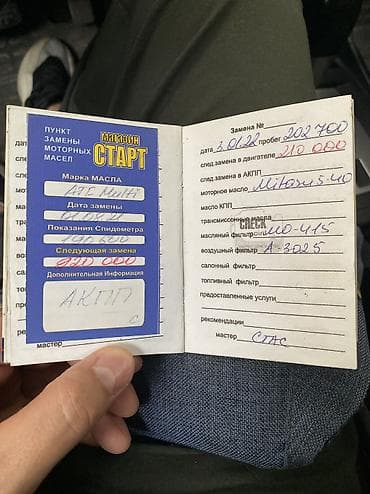 ПУНКТ
ЗАМЕНЫ
МОТОРНЫХ
МАСЕЛ
МАГАЗИН
СТАРТ
Марка МАСЛА
Дата замены
Показания Спидометра
190 200
Следующая замена
220 000
Дополнительная Информация
АКПП
с
мастер
Замена №
дата 3.01.22 пробег 202 700
след.замена в двигателе 210 000
след.замена в АКПП
моторное масло Mitasu 5-40
масло КПП
трансмиссионное масло
CHECK
масляный фильтр МО-415
воздушный фильтр А-3025
салонный фильтр
топливный фильтр
предоставленные услуги
рекомендации
мастер СТАС